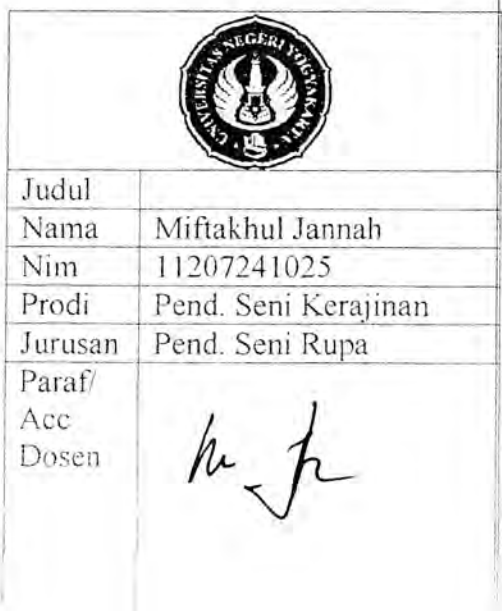 UNIVERSITAS NEGERI YOGYAKARTA
Judul
Nama Miftakhul Jannah
Nim 11207241025
Prodi Pend. Seni Kerajinan
Jurusan Pend. Seni Rupa
Paraf/
Acc
Dosen